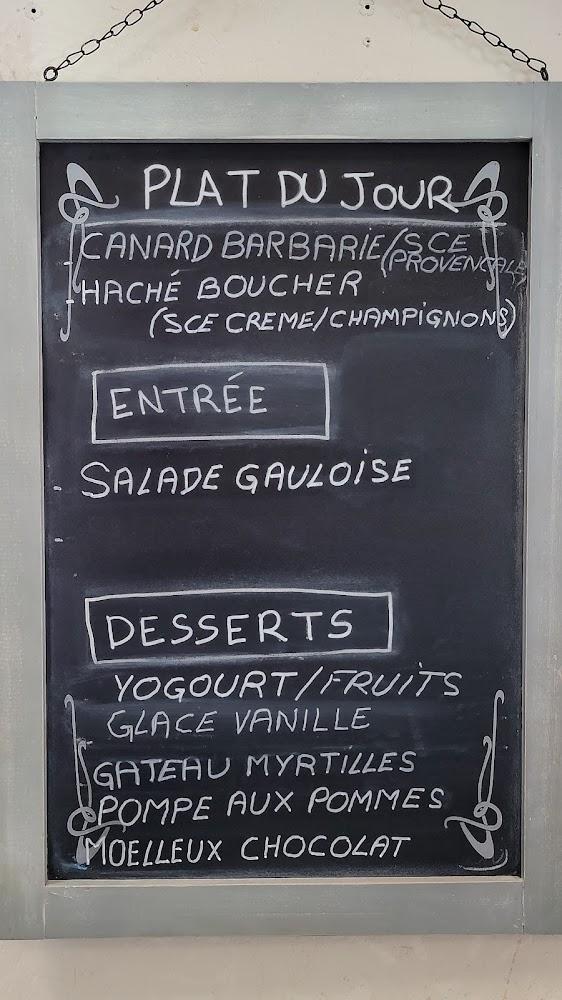 PLAT DU JOUR
- CANARD BARBARIE (SCE PROVENCALE)
- HACHÉ BOUCHER
(SCE CREME/CHAMPIGNONS)
ENTRÉE
- SALADE GAULOISE
-
DESSERTS
YOGOURT/FRUITS
GLACE VANILLE
GATEAU MYRTILLES
POMPE AUX POMMES
MOELLEUX CHOCOLAT